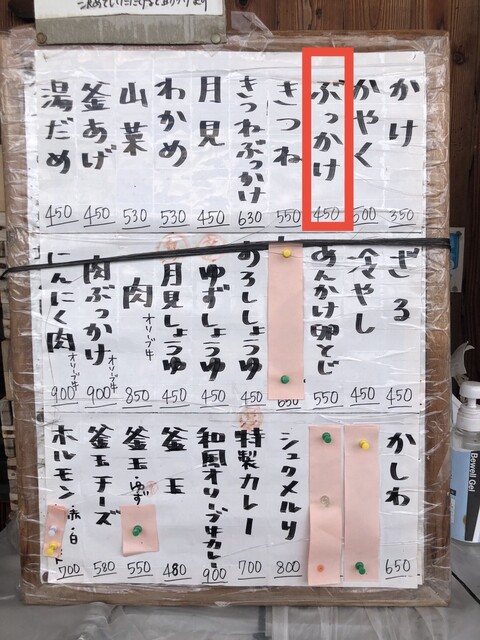 かけ
350
かやく
500
ぶっかけ
450
きつね
550
きつねぶっかけ
630
月見
450
わかめ
530
山菜
530
釜あげ
450
湯だめ
450
ざる
450
冷やし
450
あんかけ卵とじ
550
650
おろししょうゆ
450
ゆずしょうゆ
450
月見しょうゆ
450
肉
オリーブ牛
850
肉ぶっかけ
オリーブ牛
900
にんにく肉
オリーブ牛
900
かしわ
650
シュクメルリ
800
特製カレー
700
和風オリーブ牛カレー
900
釜玉
480
釜玉ゆず
550
釜玉チーズ
580
ホルモン 赤・白
700
Bewell Gel